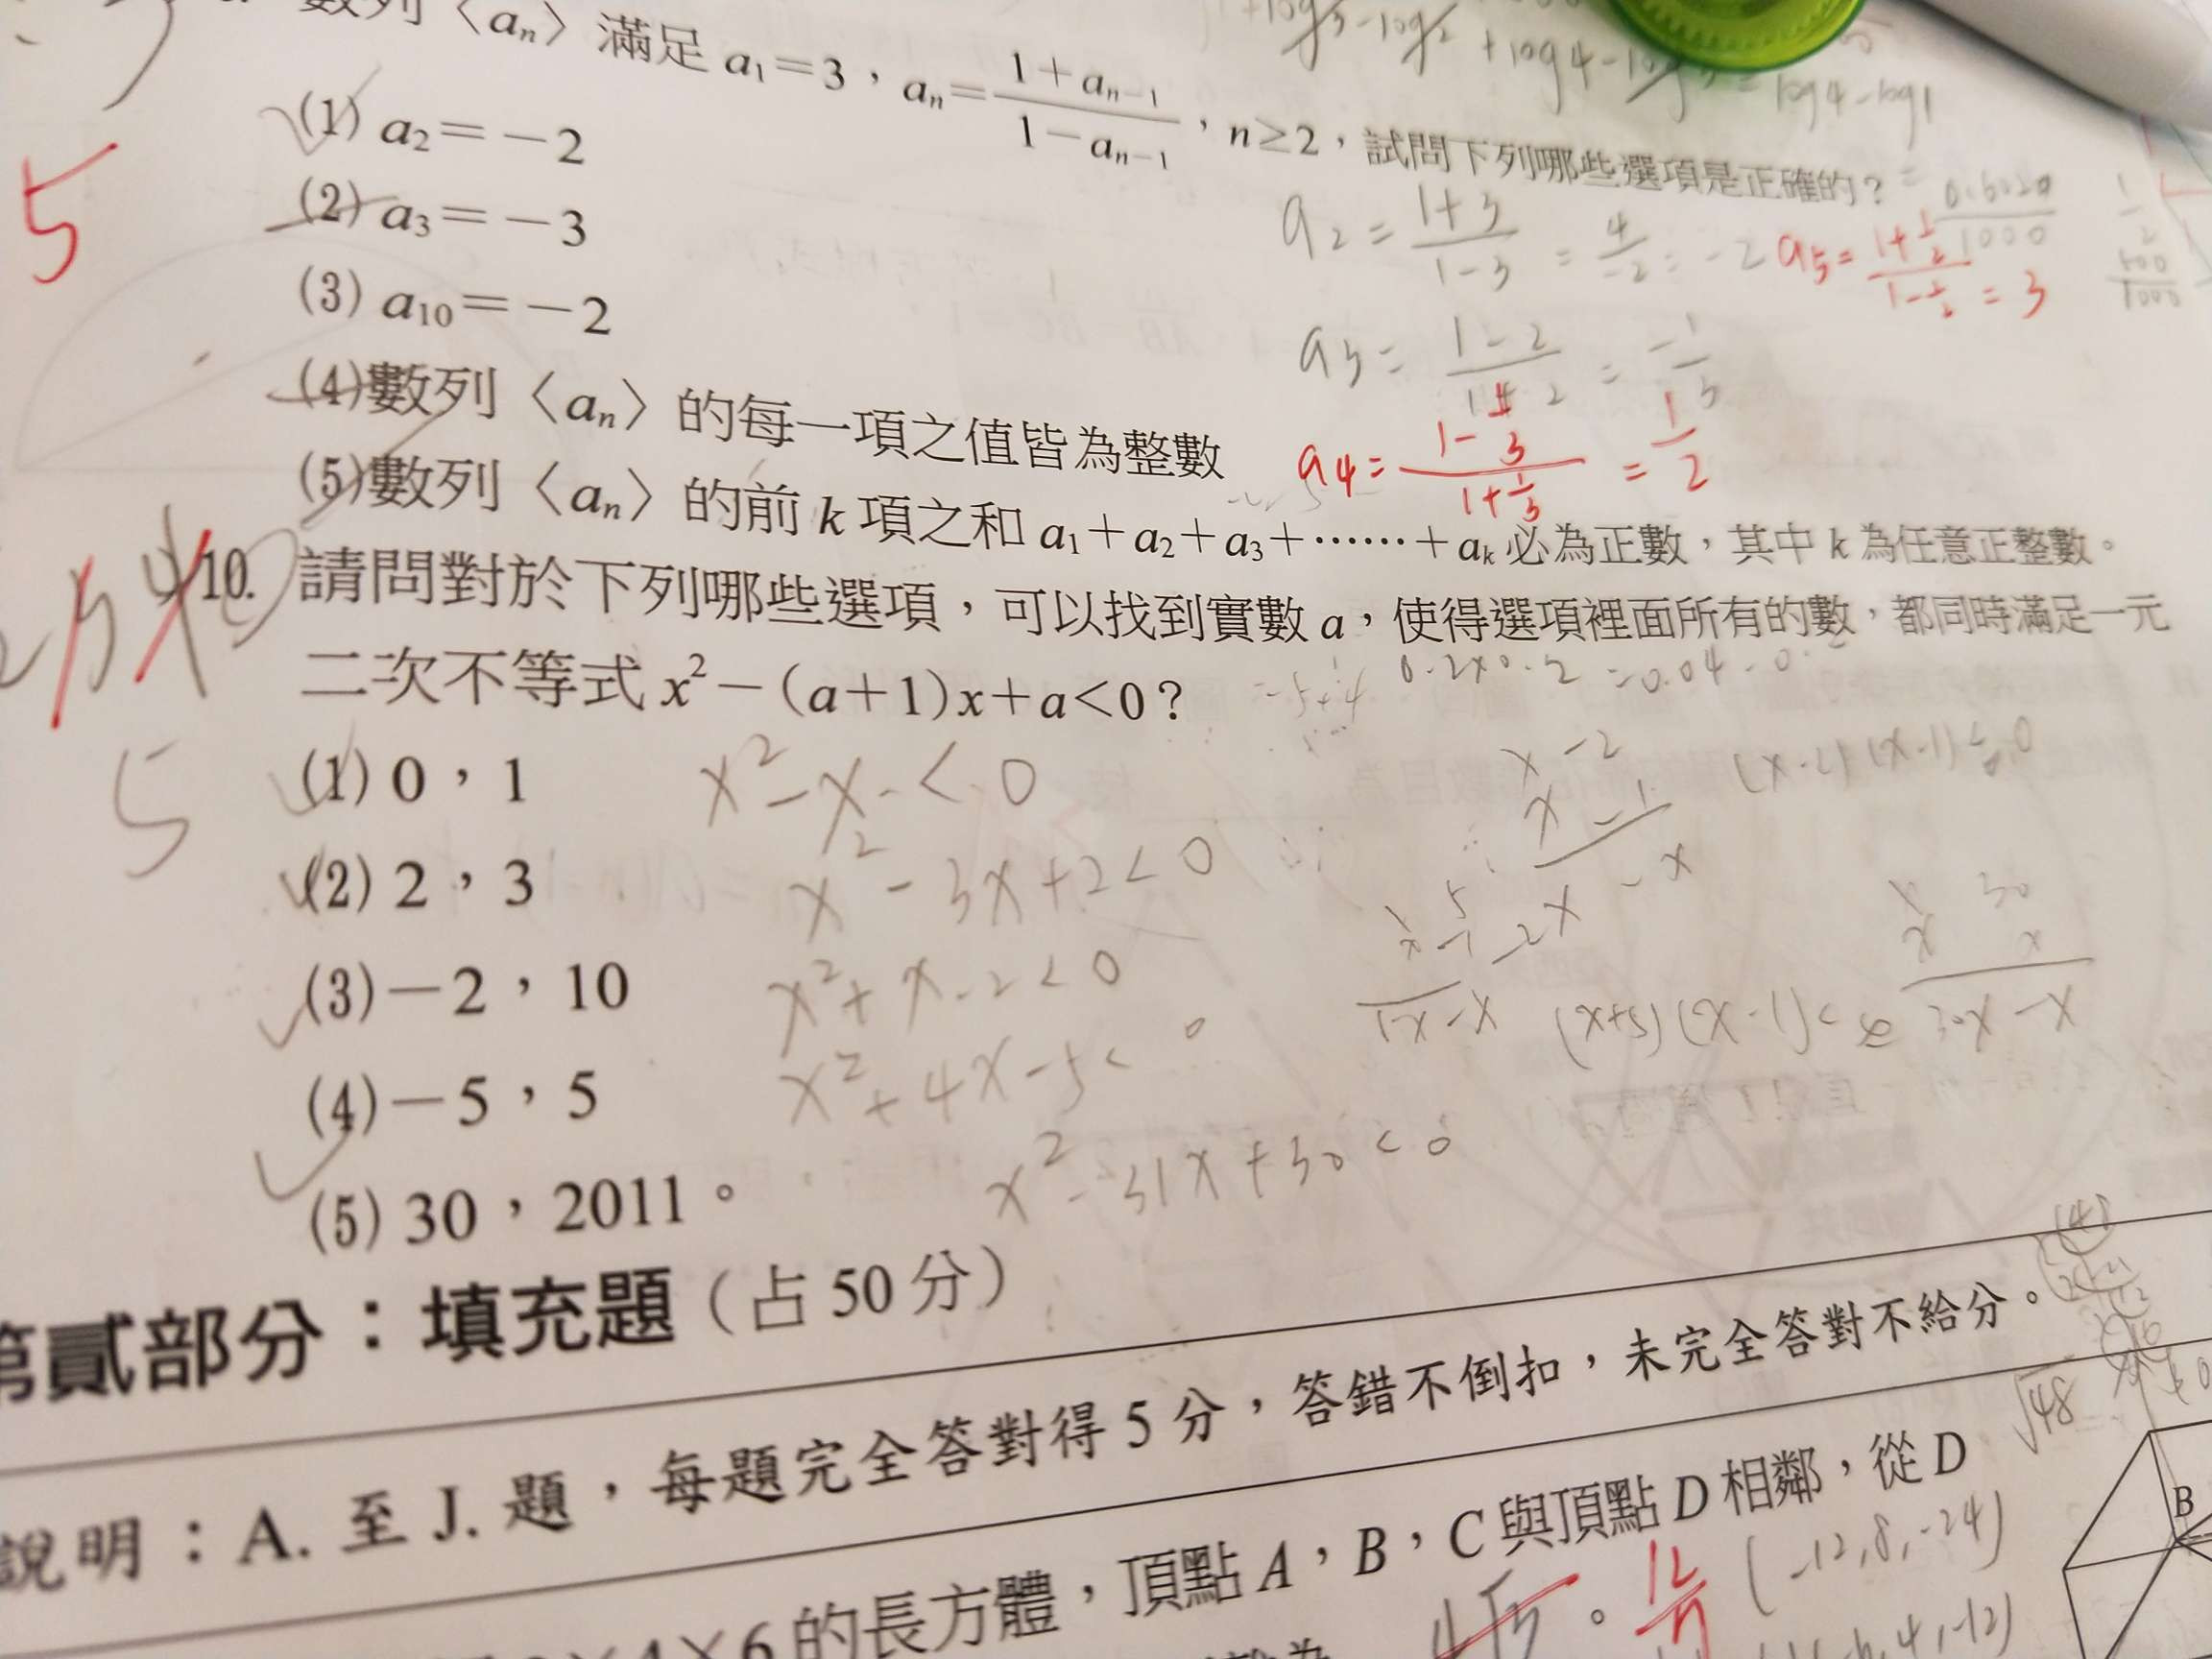 數列〈aₙ〉滿足 a₁=3，aₙ=(1+aₙ₋₁)/(1−aₙ₋₁)，n≥2，試問下列哪些選項是正確的？
1+log3-log2
+log4-log3=
log4-log1
(1) a₂=−2
(2) a₃=−3
(3) a₁₀=−2
(4)數列〈aₙ〉的每一項之值皆為整數
(5)數列〈aₙ〉的前 k 項之和 a₁+a₂+a₃+⋯⋯+aₖ 必為正數，其中 k 為任意正整數。
5
a₂=(1+3)/(1-3)=4/-2=-2
a₅=(1+1/2)/(1-1/2)=3
0.6020
1000
1/2
500/1000
a₃=(1-2)/(1+2)=-1/3
a₄=(1-1/3)/(1+1/3)=1/2
10. 請問對於下列哪些選項，可以找到實數 a，使得選項裡面所有的數，都同時滿足一元
二次不等式 x²−(a+1)x+a<0？
0.2×0.2=0.04-0.2
(1) 0，1 x²-x<0
(2) 2，3 x²-3x+2<0
(3)−2，10 x²+x-2<0
(4)−5，5 x²+4x-5<0
(5) 30，2011。 x²-31x+30<0
5
x -2
x -1
-2x -x
(x-2)(x-1)<0
(x+5)(x-1)<0
30x-x
第貳部分：填充題（占 50 分）
說明：A. 至 J. 題，每題完全答對得 5 分，答錯不倒扣，未完全答對不給分。
√48
×4×6 的長方體，頂點 A，B，C 與頂點 D 相鄰，從 D
B
(-12,8,-24)
。
12